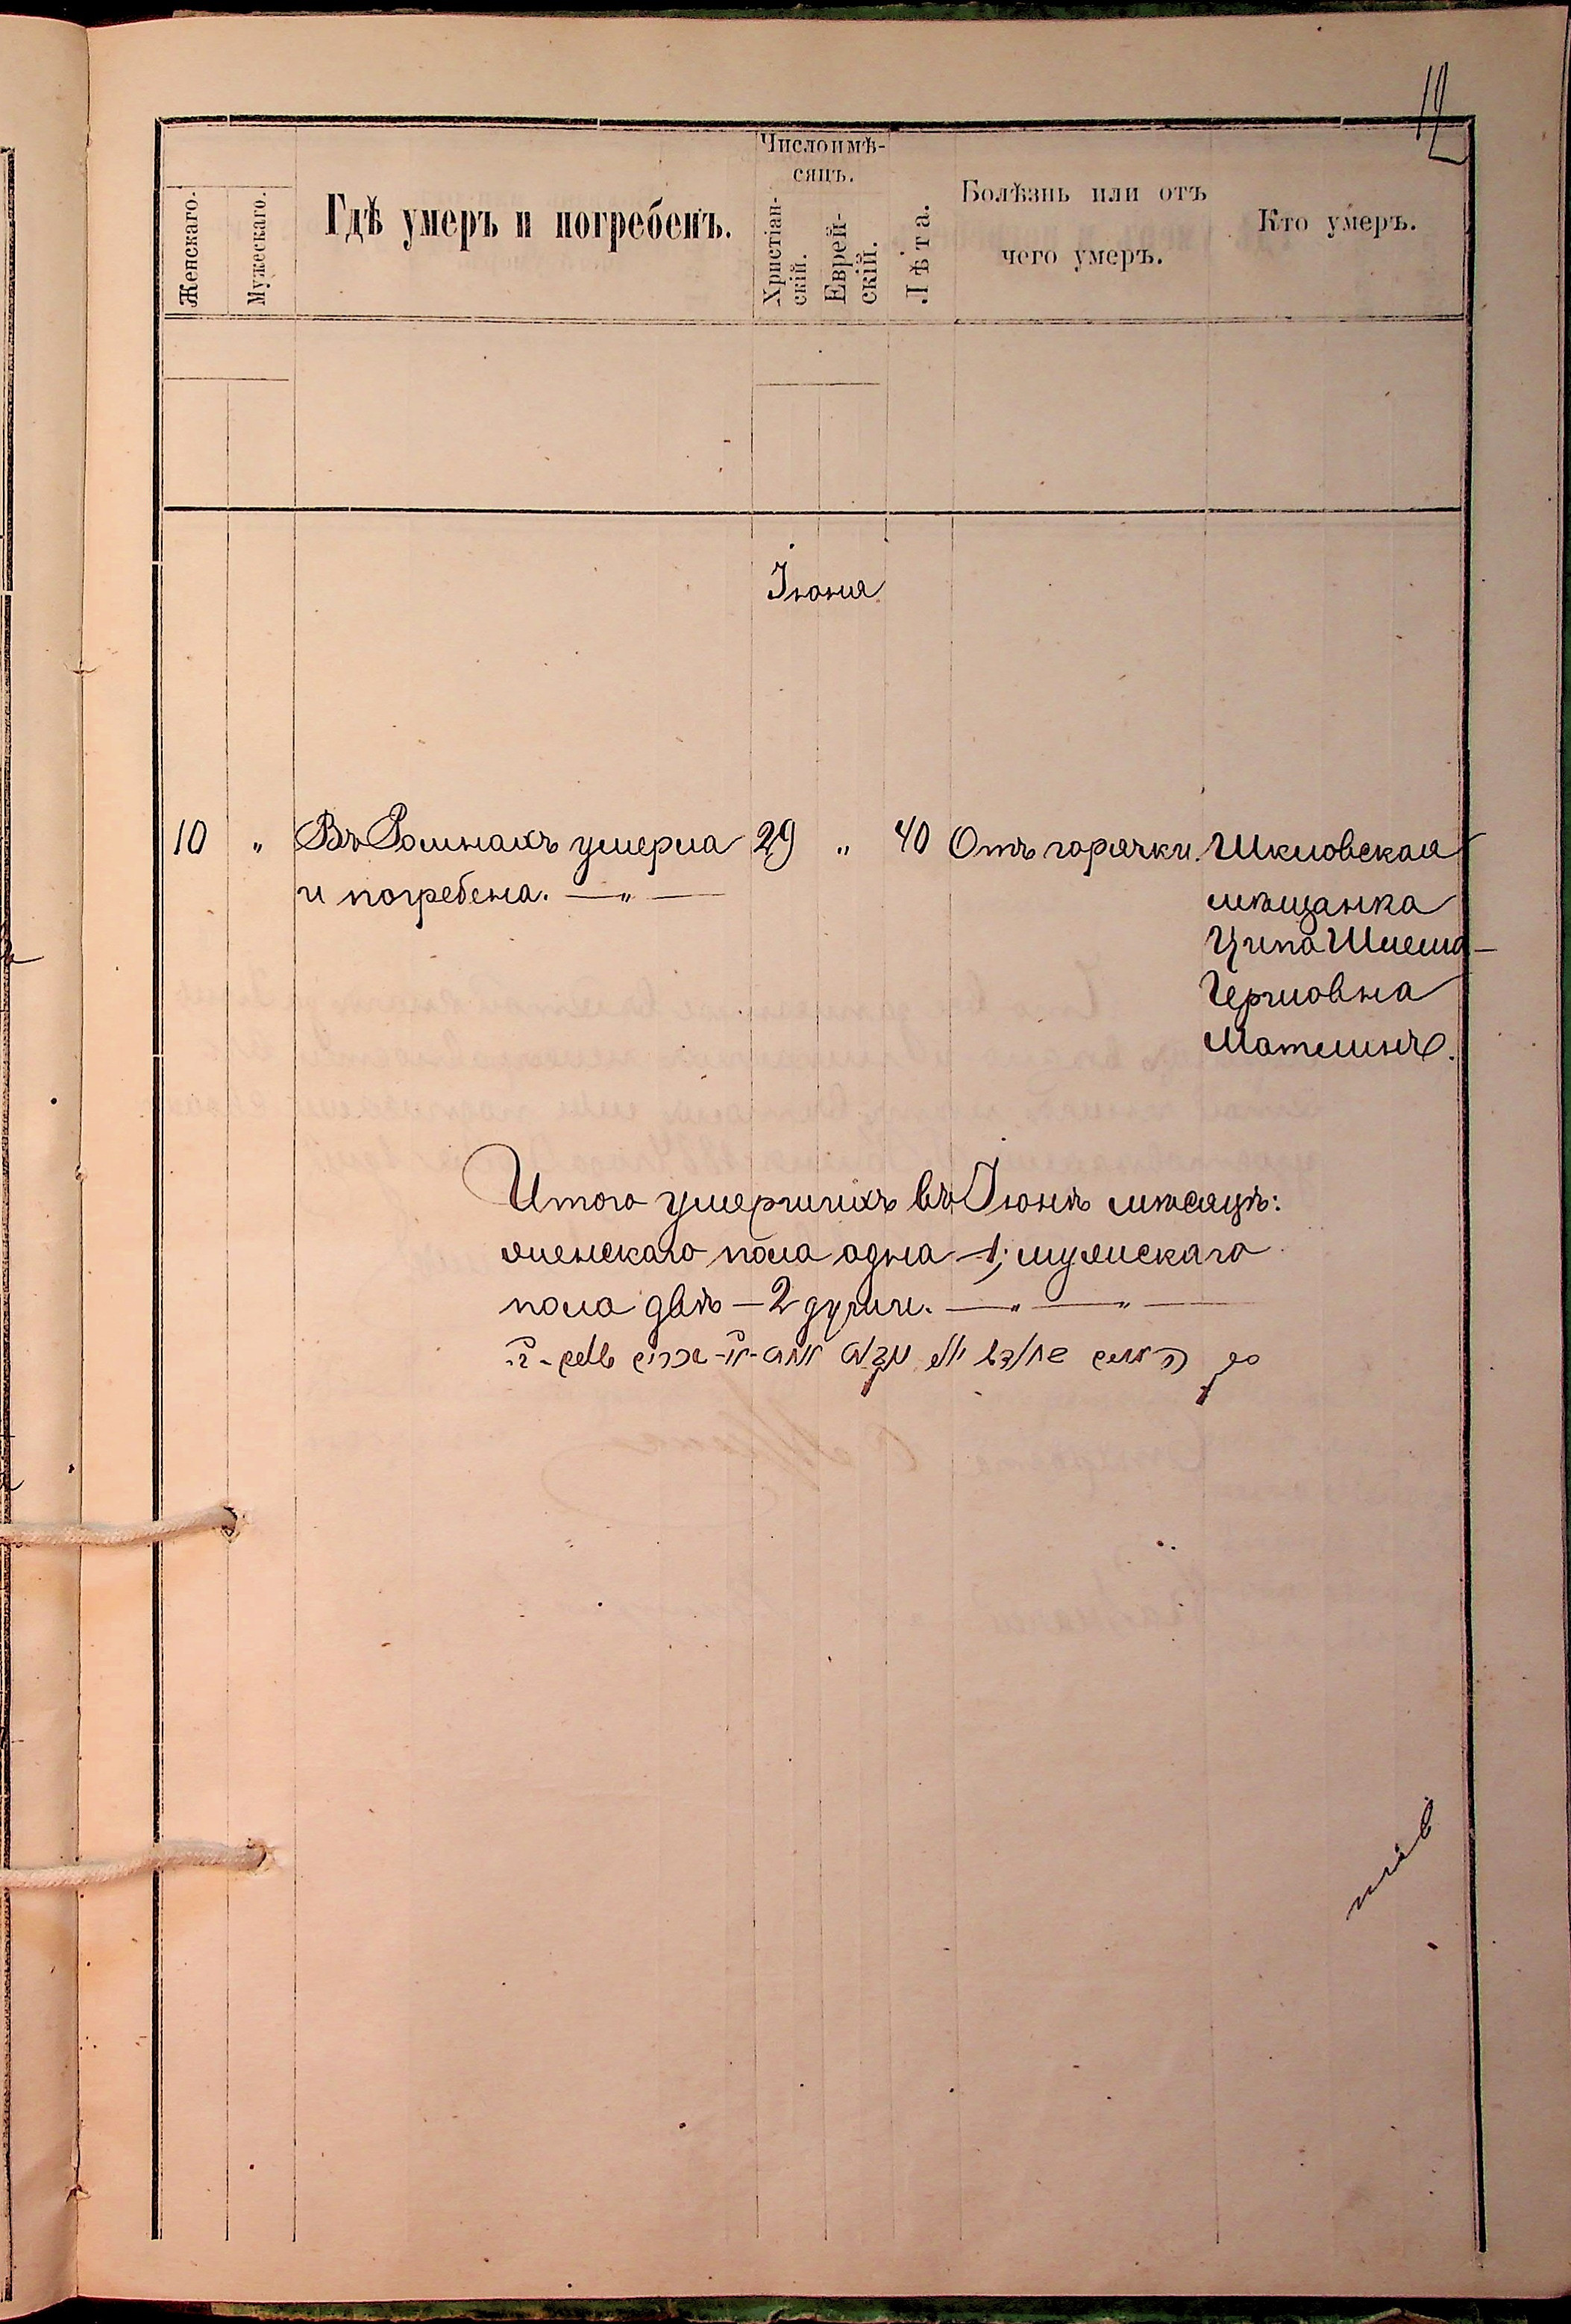 12
Женскаго.
Мужескаго.
Гдѣ умеръ и погребенъ.
Число и мѣ-
сяцъ.
Христіан-
скій.
Еврей-
скій.
Лѣта.
Болѣзнь или отъ
чего умеръ.
Кто умеръ.
Іюня
10 " Въ Ромнахъ умерла 29 " 40 Отъ горячки. Шкловская
и погребена. — " —
мѣщанка
Ципа Шлема-
Герцовна
Матлинъ.
Итого умершихъ въ Іюнѣ мѣсяцѣ:
женскаго пола одна – 1; мужскаго
пола двѣ – 2 души. — " — " —